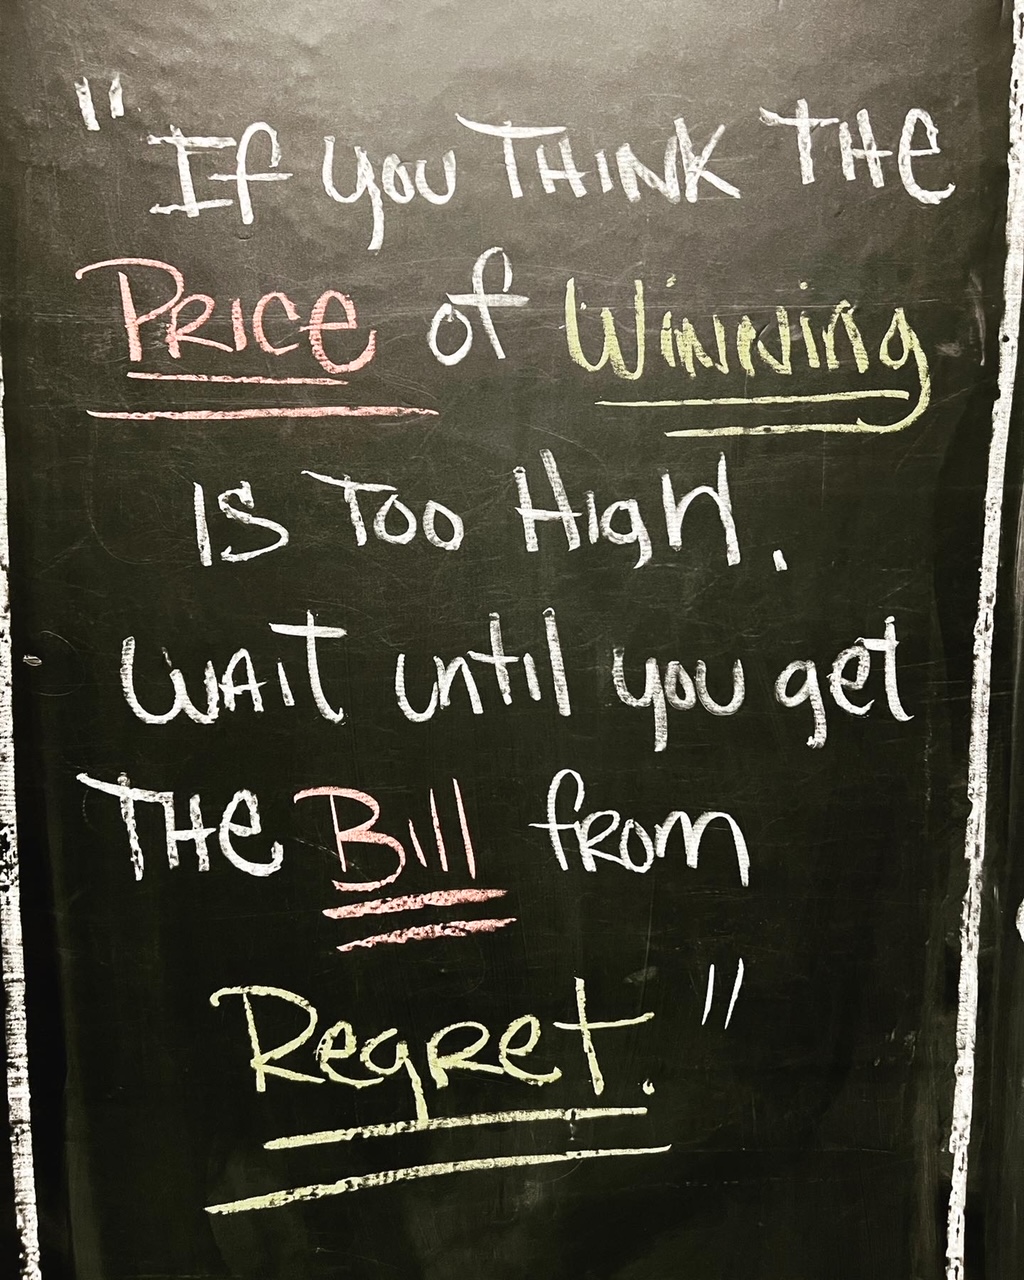 "If you THINK THe
PRice of Winning
is Too High.
WAiT until you get
THe Bill from
RegReT."